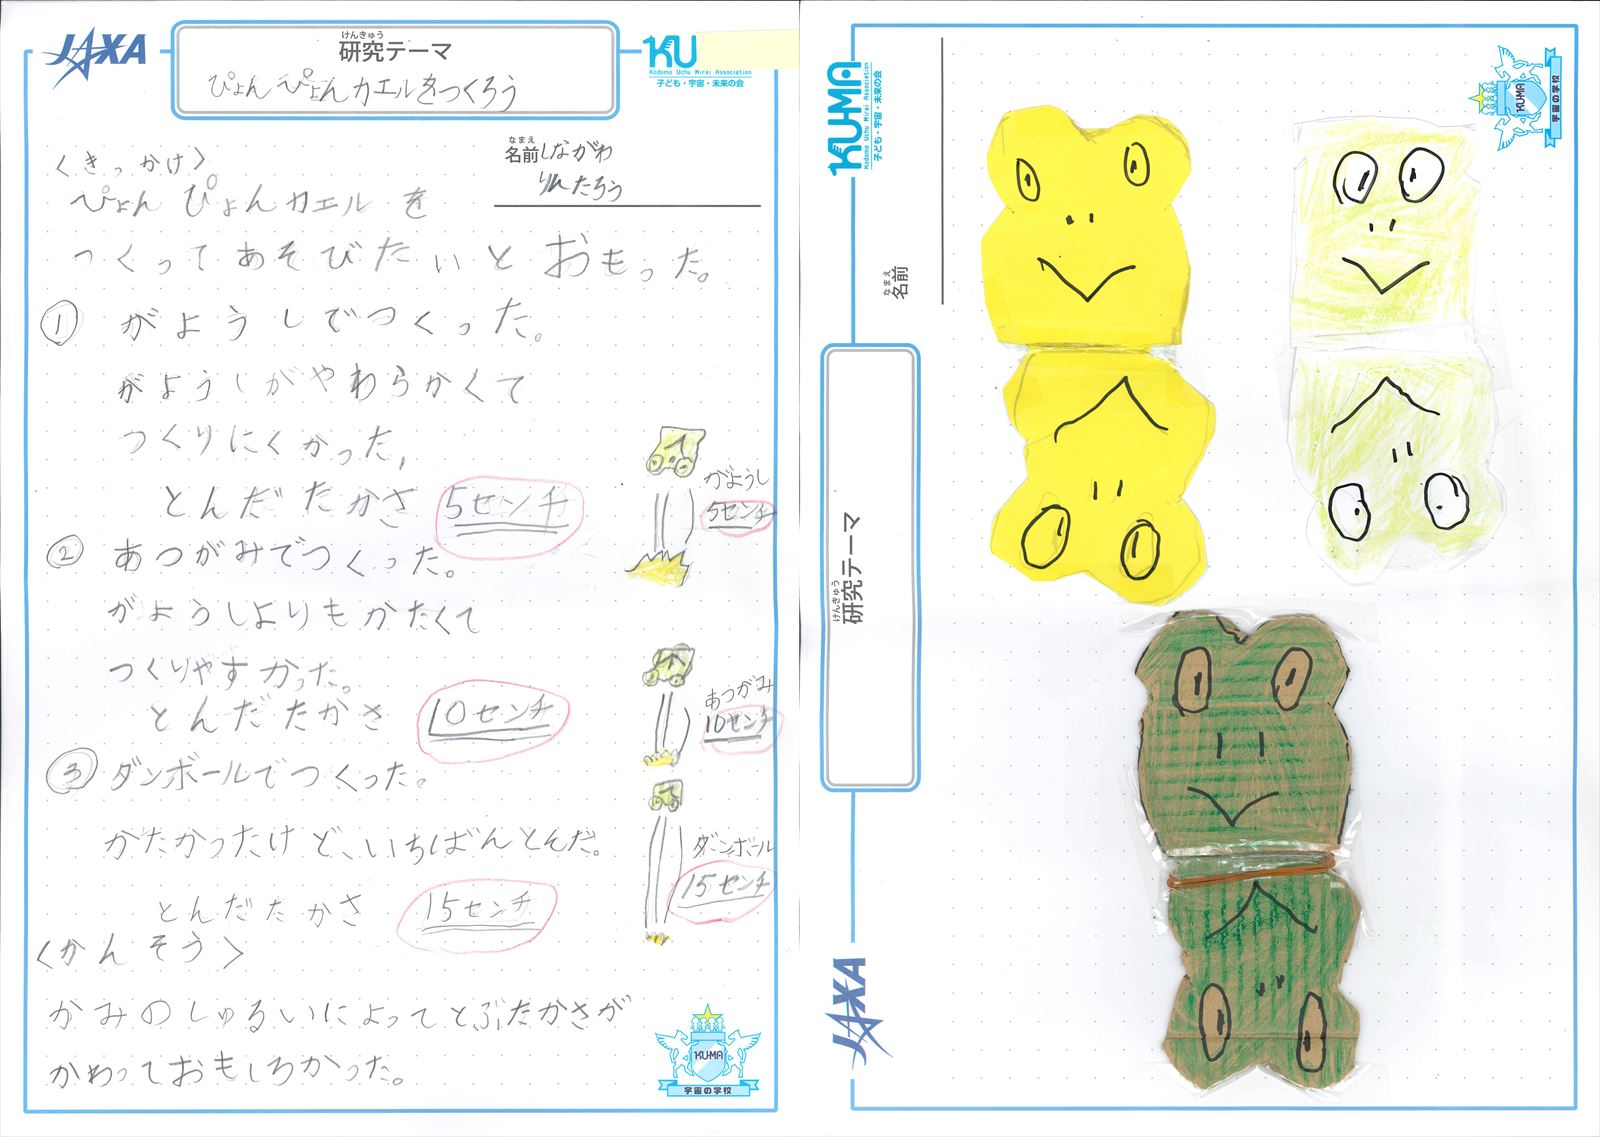 JAXA
けんきゅう
研究テーマ
ぴょんぴょんカエルをつくろう
KU
Kodomo Uchu Mirai Association
子ども・宇宙・未来の会
なまえ
名前 しながわ
りんたろう
〈きっかけ〉
ぴょんぴょんカエルを
つくってあそびたいとおもった。
① がようしでつくった。
がようしがやわらかくて
つくりにくかった。
とんだたかさ 5センチ
がようし
5センチ
② あつがみでつくった。
がようしよりもかたくて
つくりやすかった。
とんだたかさ 10センチ
あつがみ
10センチ
③ ダンボールでつくった。
かたかったけど、いちばんとんだ。
とんだたかさ 15センチ
ダンボール
15センチ
〈かんそう〉
かみのしゅるいによってとぶたかさが
かわっておもしろかった。
KUMA
宇宙の学校
KUMA
Kodomo Uchu Mirai Association
子ども・宇宙・未来の会
なまえ
名前
けんきゅう
研究テーマ
JAXA
KUMA
宇宙の学校